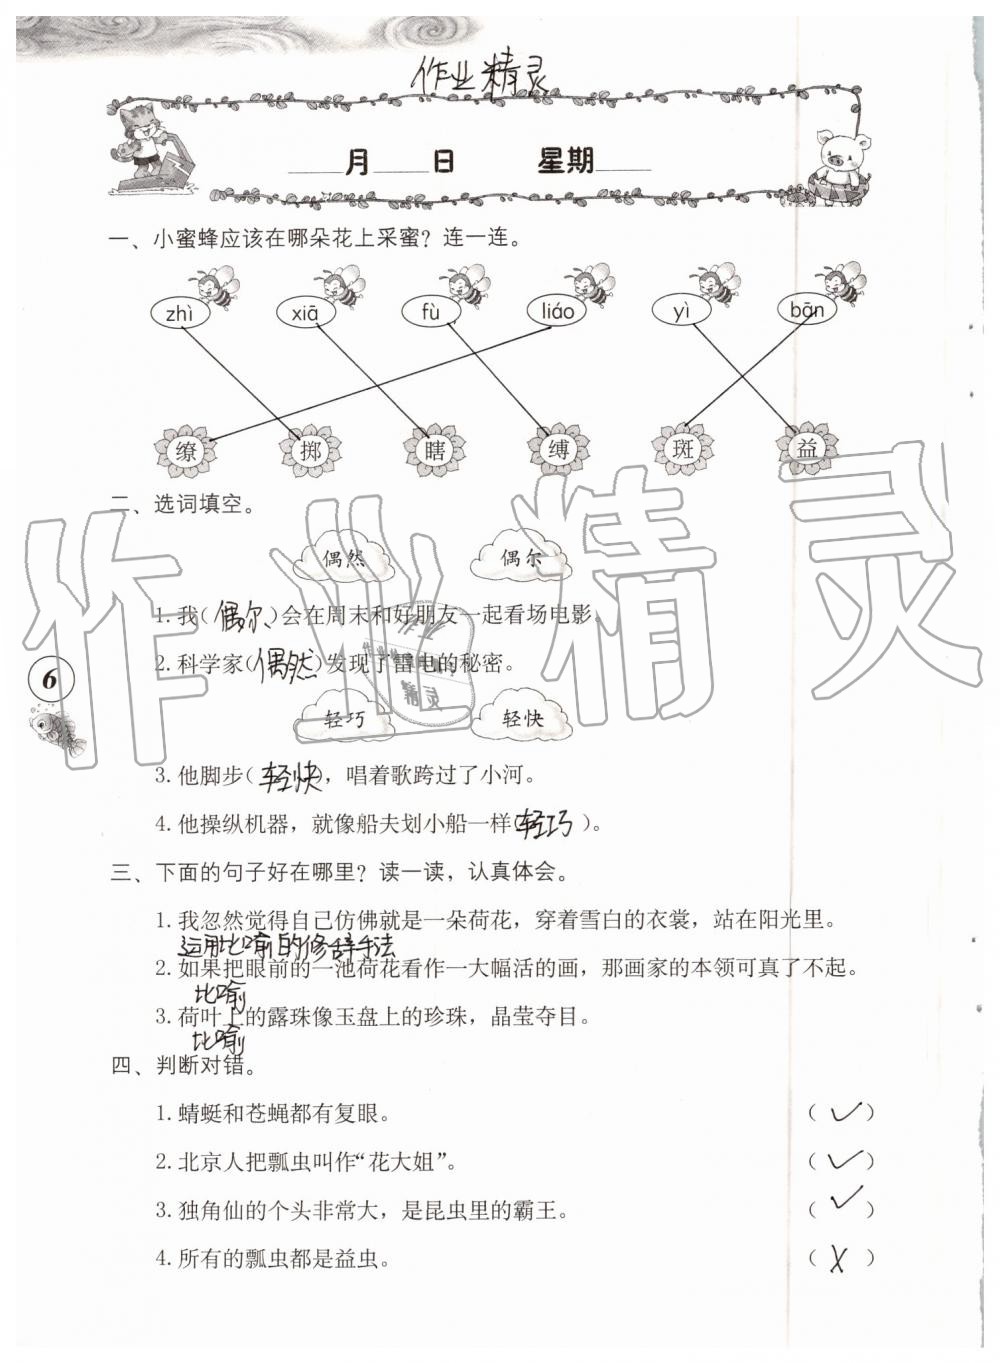 作业精灵
月 日 星期
一、小蜜蜂应该在哪朵花上采蜜？连一连。
zhì xiā fù liáo yì bān
缭 掷 瞎 缚 斑 益
二、选词填空。
偶然 偶尔
1.我（偶尔）会在周末和好朋友一起看场电影。
2.科学家（偶然）发现了雷电的秘密。
轻巧 轻快
3.他脚步（轻快），唱着歌跨过了小河。
4.他操纵机器，就像船夫划小船一样（轻巧）。
三、下面的句子好在哪里？读一读，认真体会。
1.我忽然觉得自己仿佛就是一朵荷花，穿着雪白的衣裳，站在阳光里。
运用比喻的修辞手法
2.如果把眼前的一池荷花看作一大幅活的画，那画家的本领可真了不起。
比喻
3.荷叶上的露珠像玉盘上的珍珠，晶莹夺目。
比喻
四、判断对错。
1.蜻蜓和苍蝇都有复眼。 （✓）
2.北京人把瓢虫叫作“花大姐”。 （✓）
3.独角仙的个头非常大，是昆虫里的霸王。 （✓）
4.所有的瓢虫都是益虫。 （X）
6
作业精灵